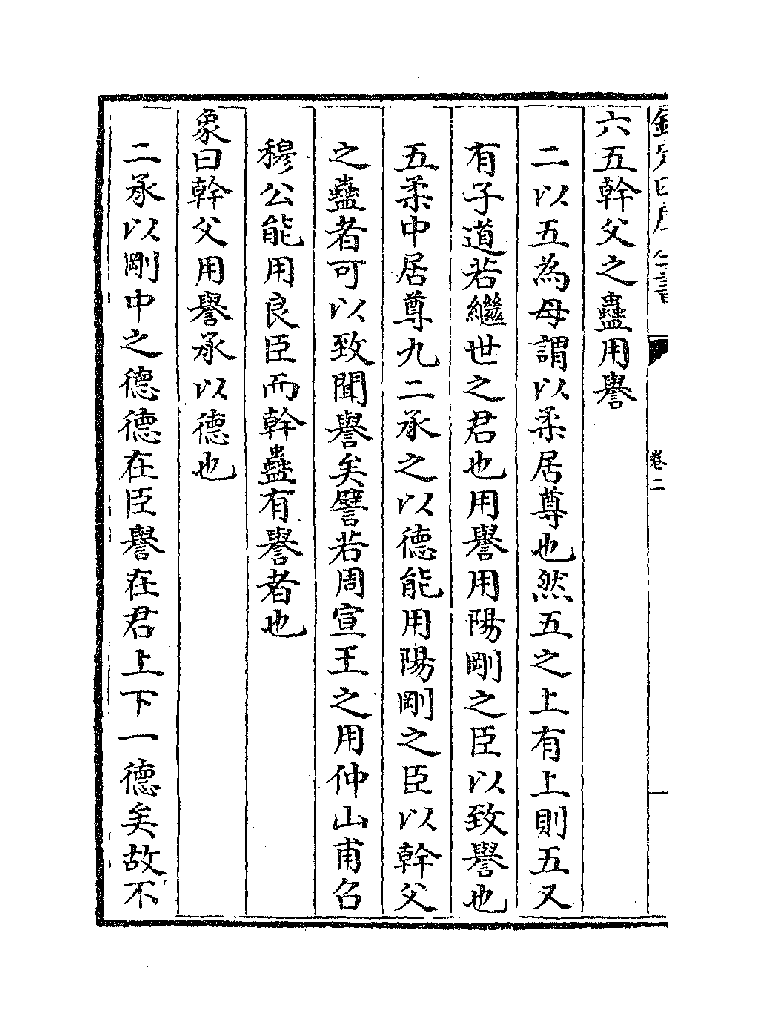 欽定四庫全書 卷二
六五幹父之蠱用譽
二以五為母謂以柔居尊也然五之上有上則五又
有子道若繼世之君也用譽用陽剛之臣以致譽也
五柔中居尊九二承之以德能用陽剛之臣以幹父
之蠱者可以致聞譽矣譬若周宣王之用仲山甫召
穆公能用良臣而幹蠱有譽者也
象曰幹父用譽承以德也
二承以剛中之德德在臣譽在君上下一德矣故不